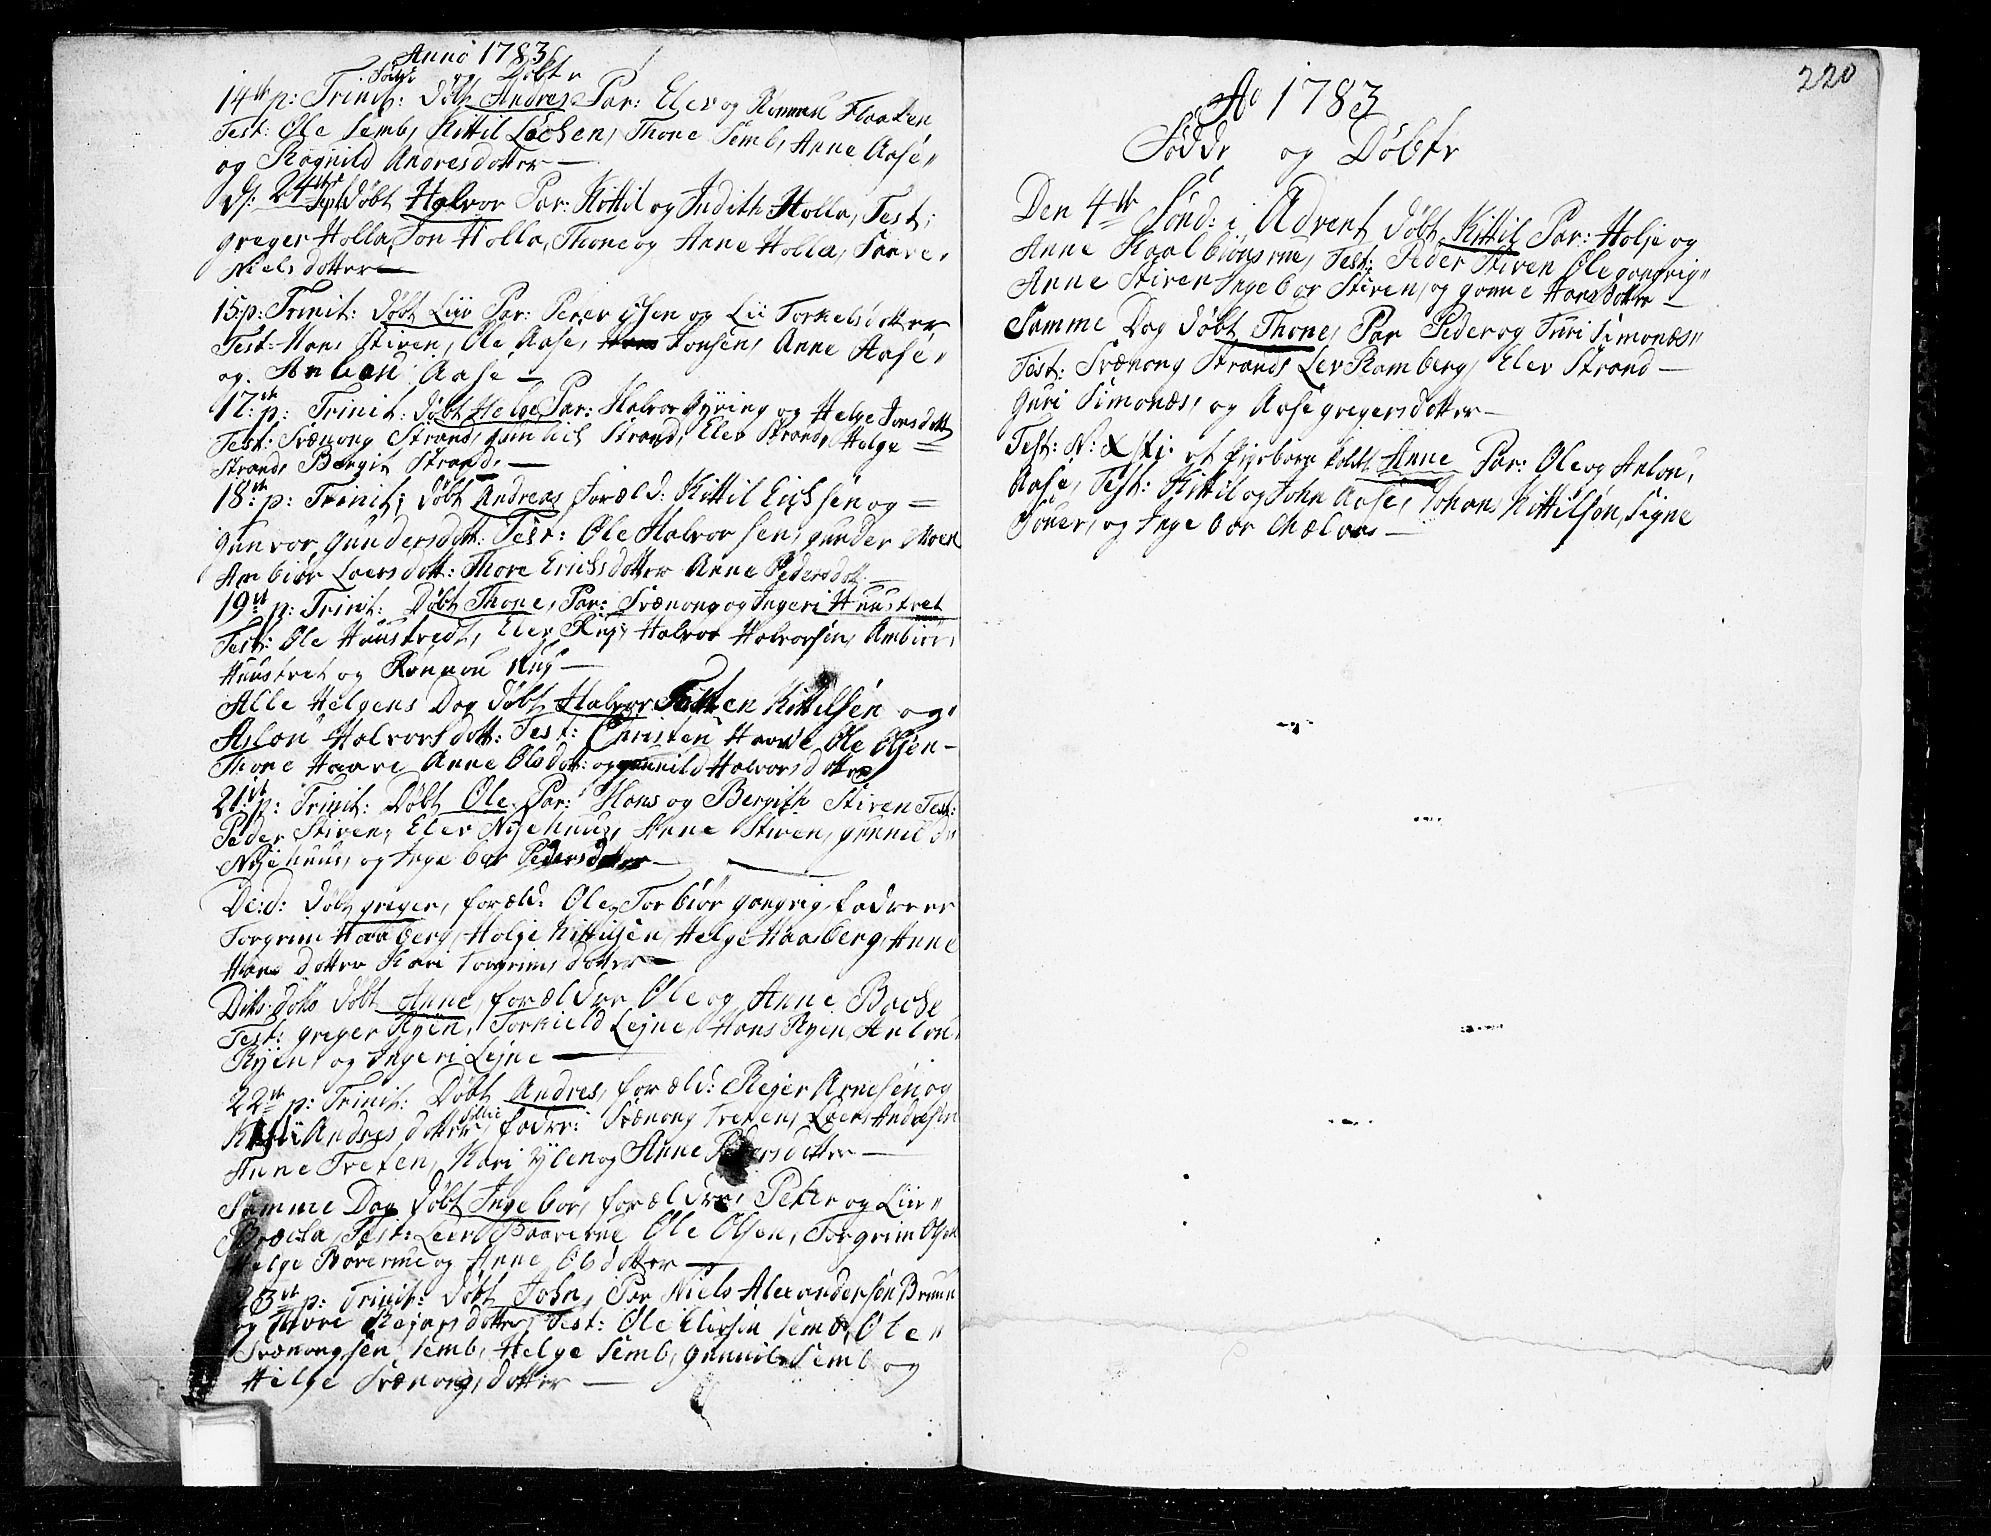 Anno 1783
Fødte og Døbte
14de p: Trinit: døbt Andres Par: Elev og Ronnau Flaaten
Test: Ole Semb, Kittil Løchen, Thone Semb, Anne Aase,,
og Ragnild Andresdotter —
d: 24de Sept døbt Halvor Par: Kittil og Judith Holla, Test:
greger Holla, Jon Holla, Thone og Anne Holla, Saave,
Nielsdotter —
15 p: Trinit: døbt Liv Par: Peter Olsen og Lii Torkelsdotter
Test: Hans Stiren, Ole Aase, Jonsen, Anne Aase,,
og Anlou Aase —
17de p: Trinit: døbt Helge, Par: Halvor Gyring og Helge Jonsdott
Test: Svænong Strand, gunlich Strand, Elev Strand, Helge =
Strand, Bergit Strand, —
18de p: Trinit; døbt Andreas foræld: Kittil Erichsen og =
gunvor gundersdott: Test: Ole Halvorsen, gunder Moen
Ambiør Loersdott: Thore Erichsdotter Anne Pedersdott —
19de p: Trinit: Døbt Thone, Par: Svænong og Ingeri Huustret
Test: Ole Huustredt, Elev Rui, Halvor Halvorsen, Ambiør,
Huustret og Ronnou Rui —
Alle Helgens Dag døbt Halvor Kittilsen og,
Aslou Halvorsdott: Test: Christen Haave Ole Olsen —
Thone Haave Anne Olsdott: og gunnild Halvorsdotter
21de p: Trinit: Døbt Ole Par: Hans og Bergith Stiren Test:
Peder Stiren, Elev Nyehuus, Anne Stiren, gunnild
Nyehuus, og Ingebor Pedersdotter —
De:d: døbt greger, foræld: Ole, Torbiør gangrig, faddere
Torgrim Haaberg, Holje Kittilsen, Helge Haaberg, Anne
Hansdotter Kari Torgrimsdotter —
Dito døbt Anne, forældre Ole og Anne Boche
Test: greger Ryen, Torkield Lejne, Hans Ryen, Anlou,
Ryen, og Ingeri Lejne —
22de p: Trinit: Døbt Andres, foræld: Rejer Arnesen og
Andresdotter, fadr: Svænong Treten, Loers Andresen
Anne Treten, Kari Ylen og Anne Pedersdotter —
Samme Dag døbt Ingebor, forældre, Peter og Liv,,
Bræcha, Test: Leer Baaverue Ole Olsen, Torgrim Olsen
Helge Boverue og Anne Olsdotter —
23de p: Trinit: døbt John, Par Niels Alexandersøn Bruun
og Thore Rejersdotter, Test: Ole Elevsen Semb, Ole,,
Svænongsen Semb, Helge Semb, gunnil Semb og
Helge Svænongsdotter —
220
Ao 1783
Fødde og Døbte
Den 4de Sønd: i Advent døbt Kittil Par: Holje og
Anne Kaalbiønsrue, Test: Peder Stiren Ole gangrig,,
Anne Stiren Ingebor Stiren, og gonne Hansdotter —
Samme Dag døbt Thone, Par Peder og Turi Simonæs,,
Test: Svænong Strand, Lev Ramberg, Elev Strand —
guri Simonæs, og Aase gregersdotter —
Fest: N: Xsti: døbt Anne Par: Ole og Anlou,
Aase, Test: Kittil og John Aase, Johan Kittilsøn, Signe
og Ingebor Mælaas —